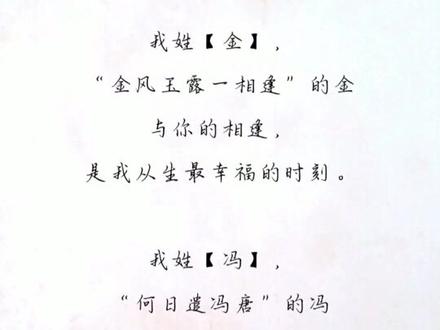 我姓【金】,
“金风玉露一相逢”的金
与你的相逢,
是我从生最幸福的时刻。
我姓【冯】,
“何日遣冯唐”的冯